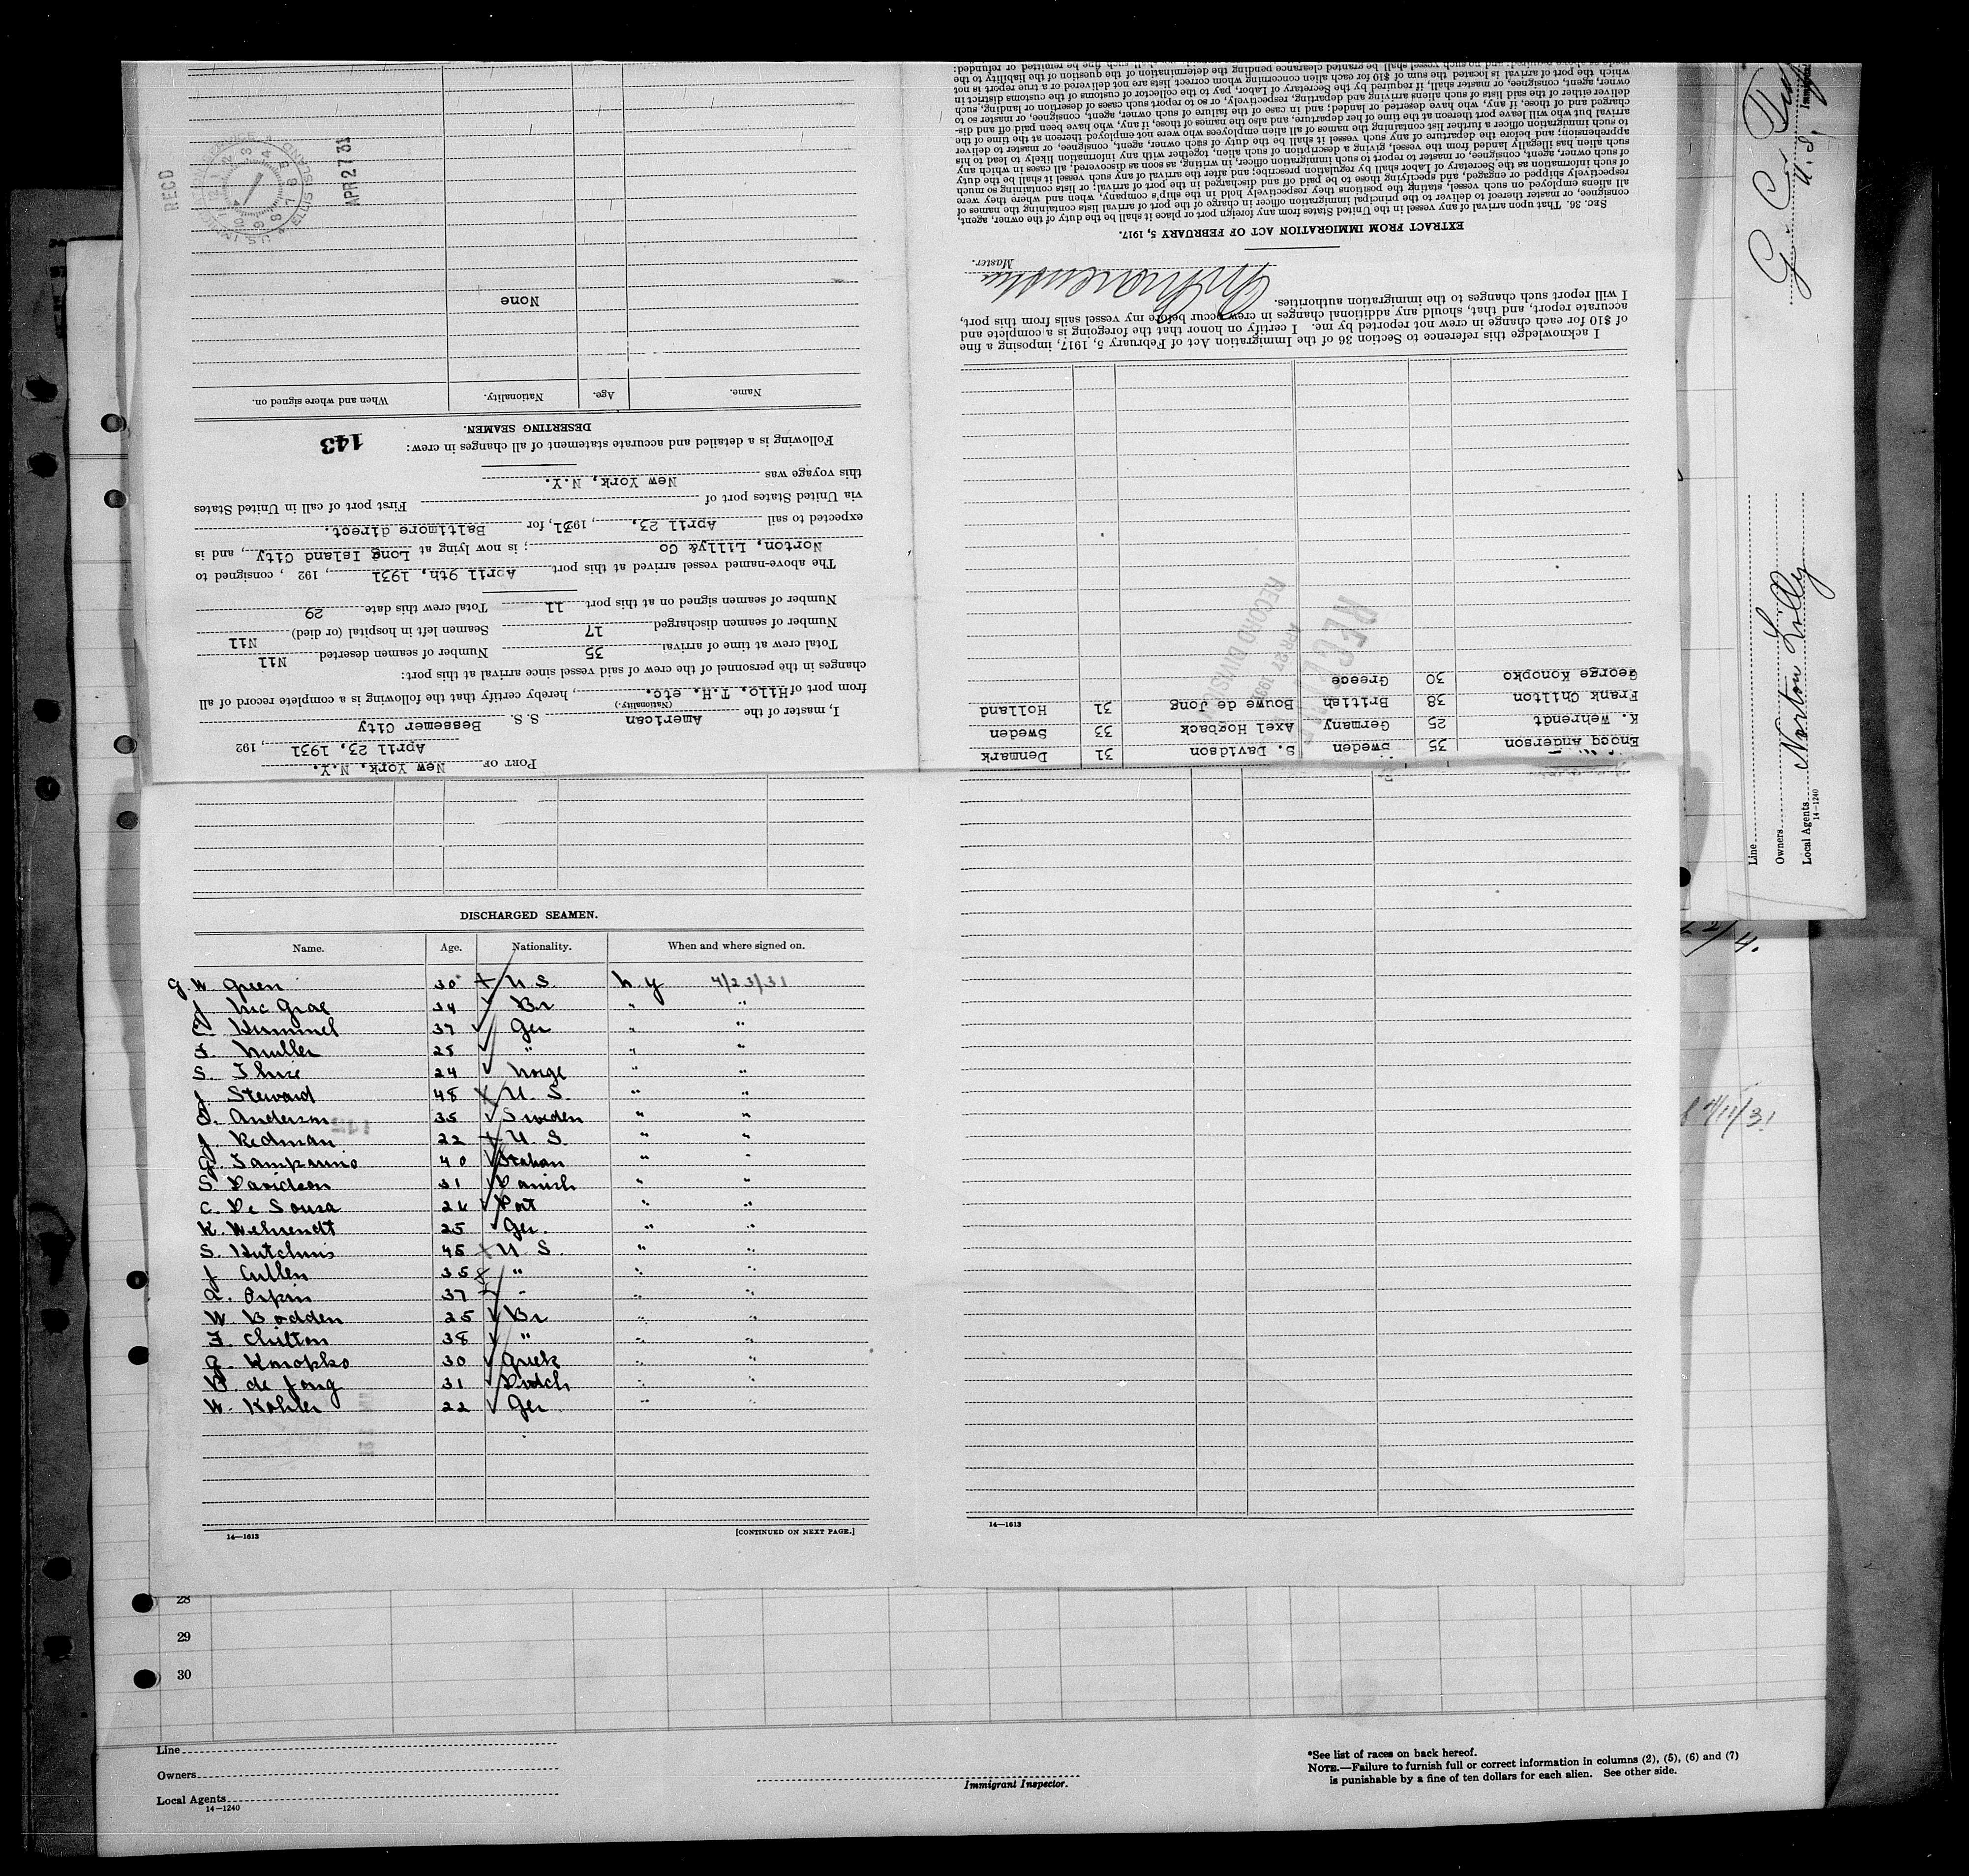 PORT OF New York, N.Y.
April 23, 1931, 192
I, master of the American S. S. Bessemer City
(Nationality.)
from port of Hilo. T.H. etc., hereby certify that the following is a complete record of all
changes in the personnel of the crew of said vessel since arrival at this port:
Total crew at time of arrival 35 Number of seamen deserted Nil
Number of seamen discharged 17 Seamen left in hospital (or died) Nil
Number of seamen signed on at this port 11 Total crew this date 29
The above-named vessel arrived at this port April 9th, 1931, 192 , consigned to
Norton, Lilly& Co ; is now lying at Long Island City, and is
expected to sail April 23, 1931, for Baltimore direct.
via United States port of First port of call in United States
this voyage was New York, N.Y.
Following is a detailed and accurate statement of all changes in crew: 143
DESERTING SEAMEN.
Name. Age. Nationality. When and where signed on.
None
RECD
APR 27 31
Enocq Anderson 35 Sweden S. Davidson 31 Denmark
K. Wehrendt 25 Germany Axel Hogback 33 Sweden
Frank Chilton 38 British Bouwe de Jong 31 Holland
George Konopko 30 Greece
RECEIVED
APR 27 1931
RECORD DIVISION
I acknowledge this reference to Section 36 of the Immigration Act of February 5, 1917, imposing a fine
of $10 for each change in crew not reported by me. I certify on honor that the foregoing is a complete and
accurate report, and that, should any additional changes in crew occur before my vessel sails from this port,
I will report such changes to the immigration authorities.
Master.
EXTRACT FROM IMMIGRATION ACT OF FEBRUARY 5, 1917.
SEC. 36. That upon arrival of any vessel in the United States from any foreign port or place it shall be the duty of the owner, agent,
consignee, or master thereof to deliver to the principal immigration officer in charge of the port of arrival lists containing the names of
all aliens employed on such vessel, stating the positions they respectively hold in the ship's company, when and where they were
respectively shipped or engaged, and specifying those to be paid off and discharged in the port of arrival; or lists containing so much
of such information as the Secretary of Labor shall by regulation prescribe; and after the arrival of any such vessel it shall be the duty
of such owner, agent, consignee, or master to report to such immigration officer, in writing, as soon as discovered, all cases in which any
such alien has illegally landed from the vessel, giving a description of such alien, together with any information likely to lead to his
apprehension; and before the departure of any such vessel it shall be the duty of such owner, agent, consignee, or master to deliver
to such immigration officer a further list containing the names of all alien employees who were not employed thereon at the time of the
arrival but who will leave port thereon at the time of her departure, and also the names of those, if any, who have been paid off and dis-
charged and of those, if any, who have deserted or landed; and in case of the failure of such owner, agent, consignee, or master so to
deliver either of the said lists of such aliens arriving and departing, respectively, or so to report such cases of desertion or landing, such
owner, agent, consignee, or master shall, if required by the Secretary of Labor, pay to the collector of customs of the customs district in
which the port of arrival is located the sum of $10 for each alien concerning whom correct lists are not delivered or a true report is not
made as above required; and no such vessel shall be granted clearance pending the determination of the question of the liability to the
DISCHARGED SEAMEN.
Name. Age. Nationality. When and where signed on.
G. W. Green 30 U S. N Y 4/23/31
J McGrae 34 Br " "
C Hummel 37 Ger " "
F. Muller 25 " " "
S. Thue 24 Norge " "
J Steward 48 U. S. " "
E. Anderson 35 Sweden " "
J. Redman 22 U S " "
G. Tamparino 40 Italian " "
S. Davidson 31 Danish " "
C. De Sousa 26 Port " "
K. Wehrendt 25 Ger " "
S. Hutchins 45 U S. " "
J Cullen 35 " " "
37 " " "
W. Bodden 25 Br " "
F. Chilton 38 " " "
G. Konopko 30 Greek " "
B. de Jong 31 Dutch " "
W. Kohler 22 Ger " "
14—1613 [CONTINUED ON NEXT PAGE.]
14—1613
28
29
30
Line
Owners
Local Agents
14—1240
Immigrant Inspector.
*See list of races on back hereof.
NOTE.—Failure to furnish full or correct information in columns (2), (5), (6) and (7)
is punishable by a fine of ten dollars for each alien. See other side.
Line
Owners
Local Agents Norton Lilly
14—1240
4/11/31